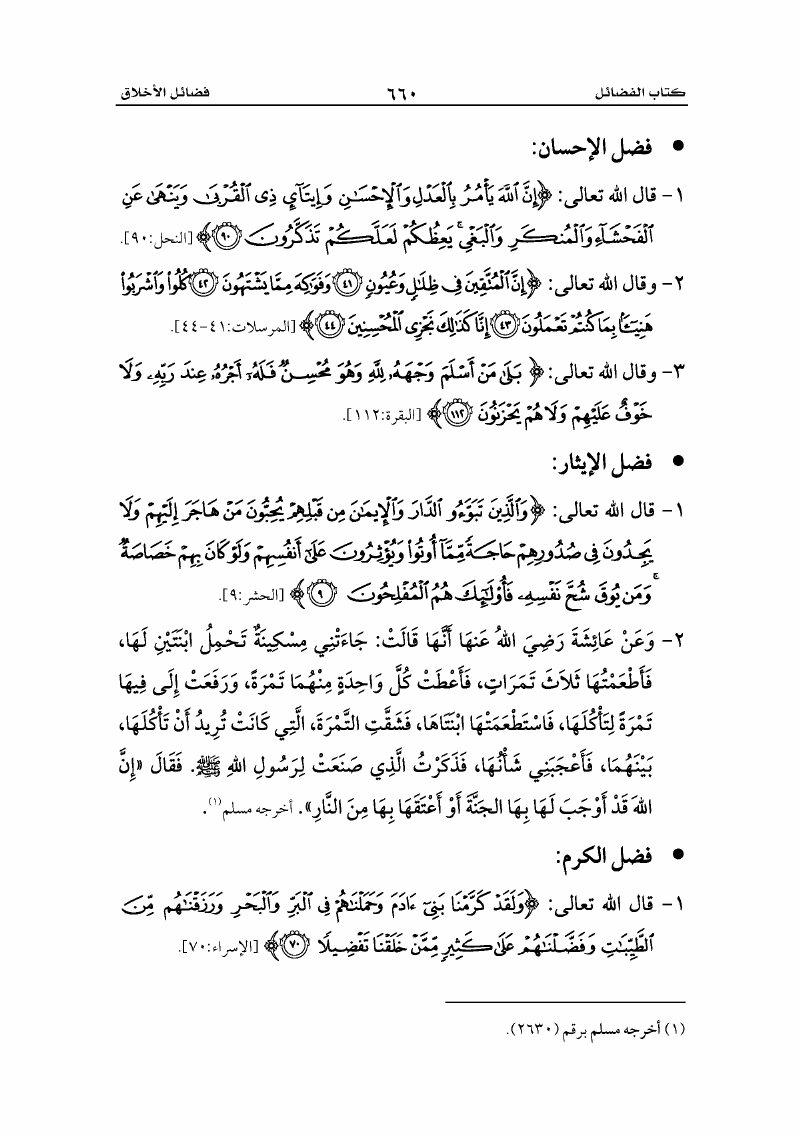 كتاب الفضائل ٦٦٠ فضائل الأخلاق
• فضل الإحسان:
١- قال الله تعالى: ﴿إِنَّ ٱللَّهَ يَأْمُرُ بِٱلْعَدْلِ وَٱلْإِحْسَٰنِ وَإِيتَآيِٕ ذِى ٱلْقُرْبَىٰ وَيَنْهَىٰ عَنِ
ٱلْفَحْشَآءِ وَٱلْمُنكَرِ وَٱلْبَغْىِ ۚ يَعِظُكُمْ لَعَلَّكُمْ تَذَكَّرُونَ ٩٠﴾ [النحل:٩٠].
٢- وقال الله تعالى: ﴿إِنَّ ٱلْمُتَّقِينَ فِى ظِلَٰلٍ وَعُيُونٍ ٤١ وَفَوَٰكِهَ مِمَّا يَشْتَهُونَ ٤٢ كُلُوا۟ وَٱشْرَبُوا۟
هَنِيٓـًٔۢا بِمَا كُنتُمْ تَعْمَلُونَ ٤٣ إِنَّا كَذَٰلِكَ نَجْزِى ٱلْمُحْسِنِينَ ٤٤﴾ [المرسلات:٤١-٤٤].
٣- وقال الله تعالى: ﴿بَلَىٰ مَنْ أَسْلَمَ وَجْهَهُۥ لِلَّهِ وَهُوَ مُحْسِنٌ فَلَهُۥٓ أَجْرُهُۥ عِندَ رَبِّهِۦ وَلَا
خَوْفٌ عَلَيْهِمْ وَلَا هُمْ يَحْزَنُونَ ١١٢﴾ [البقرة:١١٢].
• فضل الإيثار:
١- قال الله تعالى: ﴿وَٱلَّذِينَ تَبَوَّءُو ٱلدَّارَ وَٱلْإِيمَٰنَ مِن قَبْلِهِمْ يُحِبُّونَ مَنْ هَاجَرَ إِلَيْهِمْ وَلَا
يَجِدُونَ فِى صُدُورِهِمْ حَاجَةً مِّمَّآ أُوتُوا۟ وَيُؤْثِرُونَ عَلَىٰٓ أَنفُسِهِمْ وَلَوْ كَانَ بِهِمْ خَصَاصَةٌ
ۚ وَمَن يُوقَ شُحَّ نَفْسِهِۦ فَأُو۟لَٰٓئِكَ هُمُ ٱلْمُفْلِحُونَ ٩﴾ [الحشر:٩].
٢- وَعَنْ عَائِشَةَ رَضِيَ اللهُ عَنهَا أَنَّهَا قَالَتْ: جَاءَتْنِي مِسْكِينَةٌ تَحْمِلُ ابْنَتَيْنِ لَهَا،
فَأَطْعَمْتُهَا ثَلَاثَ تَمَرَاتٍ، فَأَعْطَتْ كُلَّ وَاحِدَةٍ مِنْهُمَا تَمْرَةً، وَرَفَعَتْ إِلَى فِيهَا
تَمْرَةً لِتَأْكُلَهَا، فَاسْتَطْعَمَتْهَا ابْنَتَاهَا، فَشَقَّتِ التَّمْرَةَ، الَّتِي كَانَتْ تُرِيدُ أَنْ تَأْكُلَهَا،
بَيْنَهُمَا، فَأَعْجَبَنِي شَأْنُهَا، فَذَكَرْتُ الَّذِي صَنَعَتْ لِرَسُولِ اللهِ ﷺ. فَقَالَ «إِنَّ
اللهَ قَدْ أَوْجَبَ لَهَا بِهَا الجَنَّةَ أَوْ أَعْتَقَهَا بِهَا مِنَ النَّارِ». أخرجه مسلم(١).
• فضل الكرم:
١- قال الله تعالى: ﴿وَلَقَدْ كَرَّمْنَا بَنِىٓ ءَادَمَ وَحَمَلْنَٰهُمْ فِى ٱلْبَرِّ وَٱلْبَحْرِ وَرَزَقْنَٰهُم مِّنَ
ٱلطَّيِّبَٰتِ وَفَضَّلْنَٰهُمْ عَلَىٰ كَثِيرٍ مِّمَّنْ خَلَقْنَا تَفْضِيلًا ٧٠﴾ [الإسراء:٧٠].
(١) أخرجه مسلم برقم (٢٦٣٠).